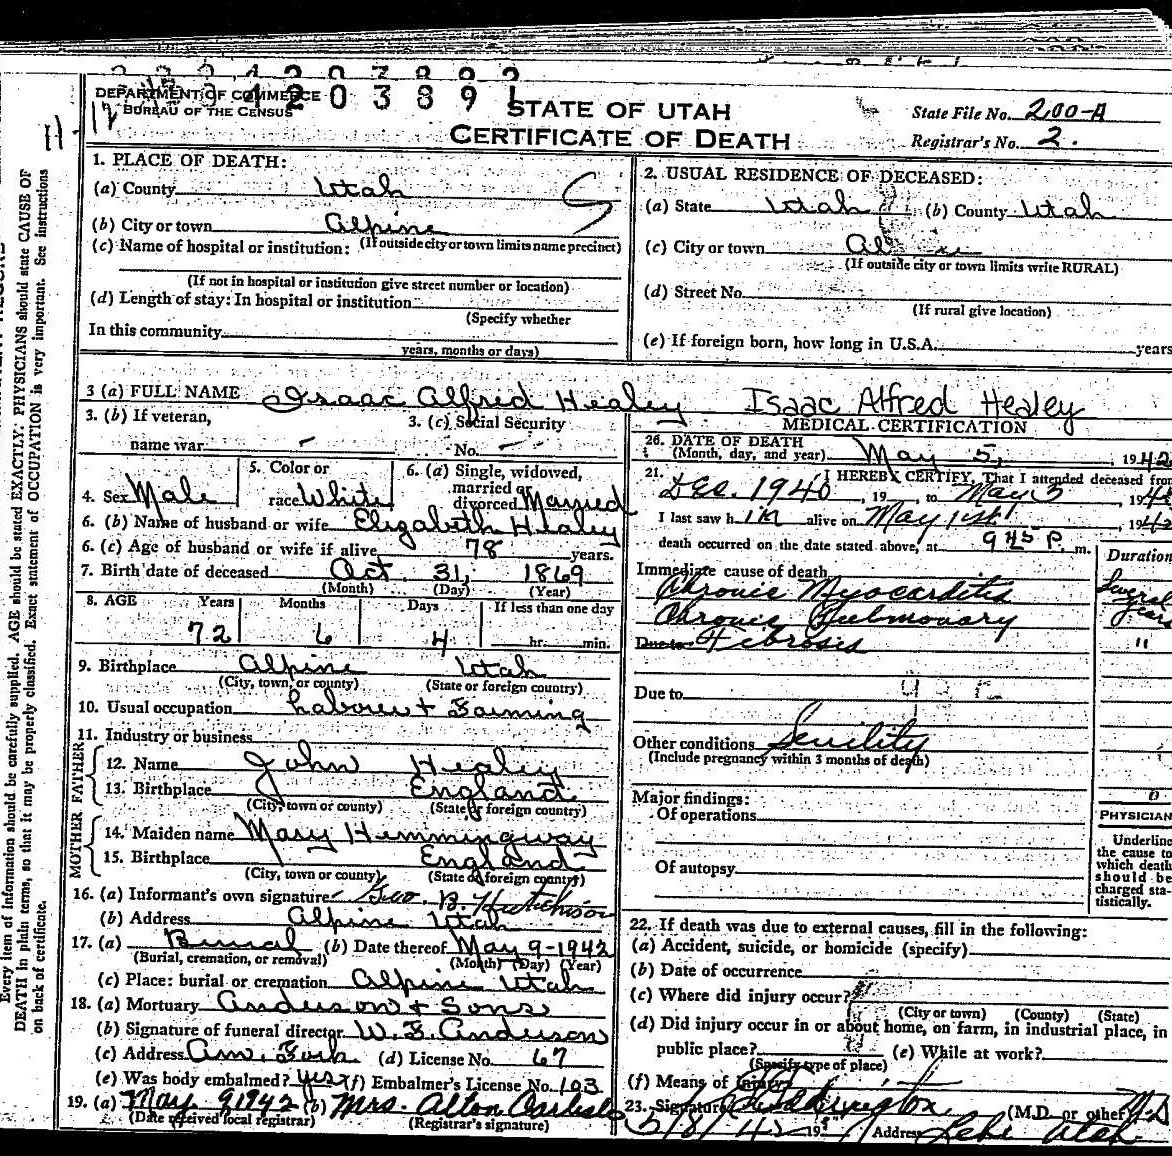 4203891
DEPARTMENT OF COMMERCE
BUREAU OF THE CENSUS
STATE OF UTAH
CERTIFICATE OF DEATH
State File No. 200-A
Registrar's No. 2.
1. PLACE OF DEATH:
(a) County Utah
(b) City or town Alpine
(If outside city or town limits name precinct)
(c) Name of hospital or institution:
(If not in hospital or institution give street number or location)
(d) Length of stay: In hospital or institution
(Specify whether
In this community
years, months or days)
2. USUAL RESIDENCE OF DECEASED:
(a) State Utah (b) County Utah
(c) City or town
(If outside city or town limits write RURAL)
(d) Street No.
(If rural give location)
(e) If foreign born, how long in U.S.A. years
3 (a) FULL NAME Isaac Alfred Healey Isaac Alfred Healey
3. (b) If veteran,
name war -
3. (c) Social Security
No. -
4. Sex Male
5. Color or
race White
6. (a) Single, widowed,
married or
divorced Married
6. (b) Name of husband or wife Elizabeth Healey
6. (c) Age of husband or wife if alive 78 years.
7. Birth date of deceased Oct 31, 1869
(Month) (Day) (Year)
8. AGE Years Months Days If less than one day
72 6 4 hr. min.
9. Birthplace Alpine Utah
(City, town, or county) (State or foreign country)
10. Usual occupation Laborer + Farming
11. Industry or business
FATHER
12. Name John Healey
13. Birthplace England
(City, town or county) (State or foreign country)
MOTHER
14. Maiden name Mary Hemmingway
15. Birthplace England
(City, town or county) (State or foreign country)
16. (a) Informant's own signature Geo. B. Hutchison
(b) Address Alpine Utah
17. (a) Burial (b) Date thereof May 9-1942
(Burial, cremation, or removal) (Month) (Day) (Year)
(c) Place: burial or cremation Alpine Utah
18. (a) Mortuary Anderson + Sons
(b) Signature of funeral director W. E. Anderson
(c) Address Am. Fork (d) License No. 67
(e) Was body embalmed? yes (f) Embalmer's License No. 103
19. (a) May 9 1942 (b) Mrs. Alton Carlisle
(Date received local registrar) (Registrar's signature)
MEDICAL CERTIFICATION
20. DATE OF DEATH
(Month, day, and year) May 5, 1942
21. I HEREBY CERTIFY, That I attended deceased from
Dec. 1940, 19 , to May 5 194
I last saw him alive on May 1st, 1942
death occurred on the date stated above, at 9 45 P. m.
Duration
Immediate cause of death
Chronic Myocarditis Several years
Chronic Pulmonary
Due to Fibrosis "
Due to
Other conditions Senility
(Include pregnancy within 3 months of death)
Major findings:
Of operations
Of autopsy
PHYSICIAN
Underline
the cause to
which death
should be
charged sta-
tistically.
22. If death was due to external causes, fill in the following:
(a) Accident, suicide, or homicide (specify)
(b) Date of occurrence
(c) Where did injury occur?
(City or town) (County) (State)
(d) Did injury occur in or about home, on farm, in industrial place, in
public place? (e) While at work?
(Specify type of place)
(f) Means of Injury
23. Signature Eddington (M.D. or other) M.D
5/8/42 19 Address Lehi Utah
Every item of information should be carefully supplied. AGE should be stated EXACTLY. PHYSICIANS should state CAUSE OF
DEATH in plain terms, so that it may be properly classified. Exact statement of OCCUPATION is very important. See instructions
on back of certificate.